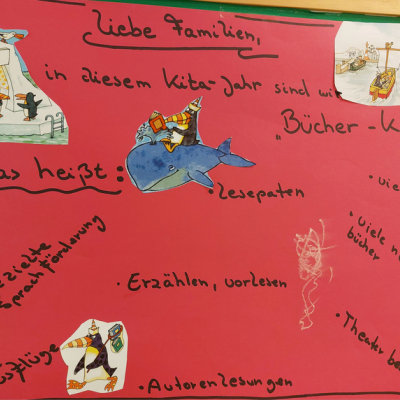 Liebe Familien,
in diesem Kita-Jahr sind wi
„Bücher-K
as heißt:
• Lesepaten
• vie
• viele n
bücher
ezielte
Sprachförderung
• Erzählen, vorlesen
• Theater be
usflüge
• Autorenlesungen